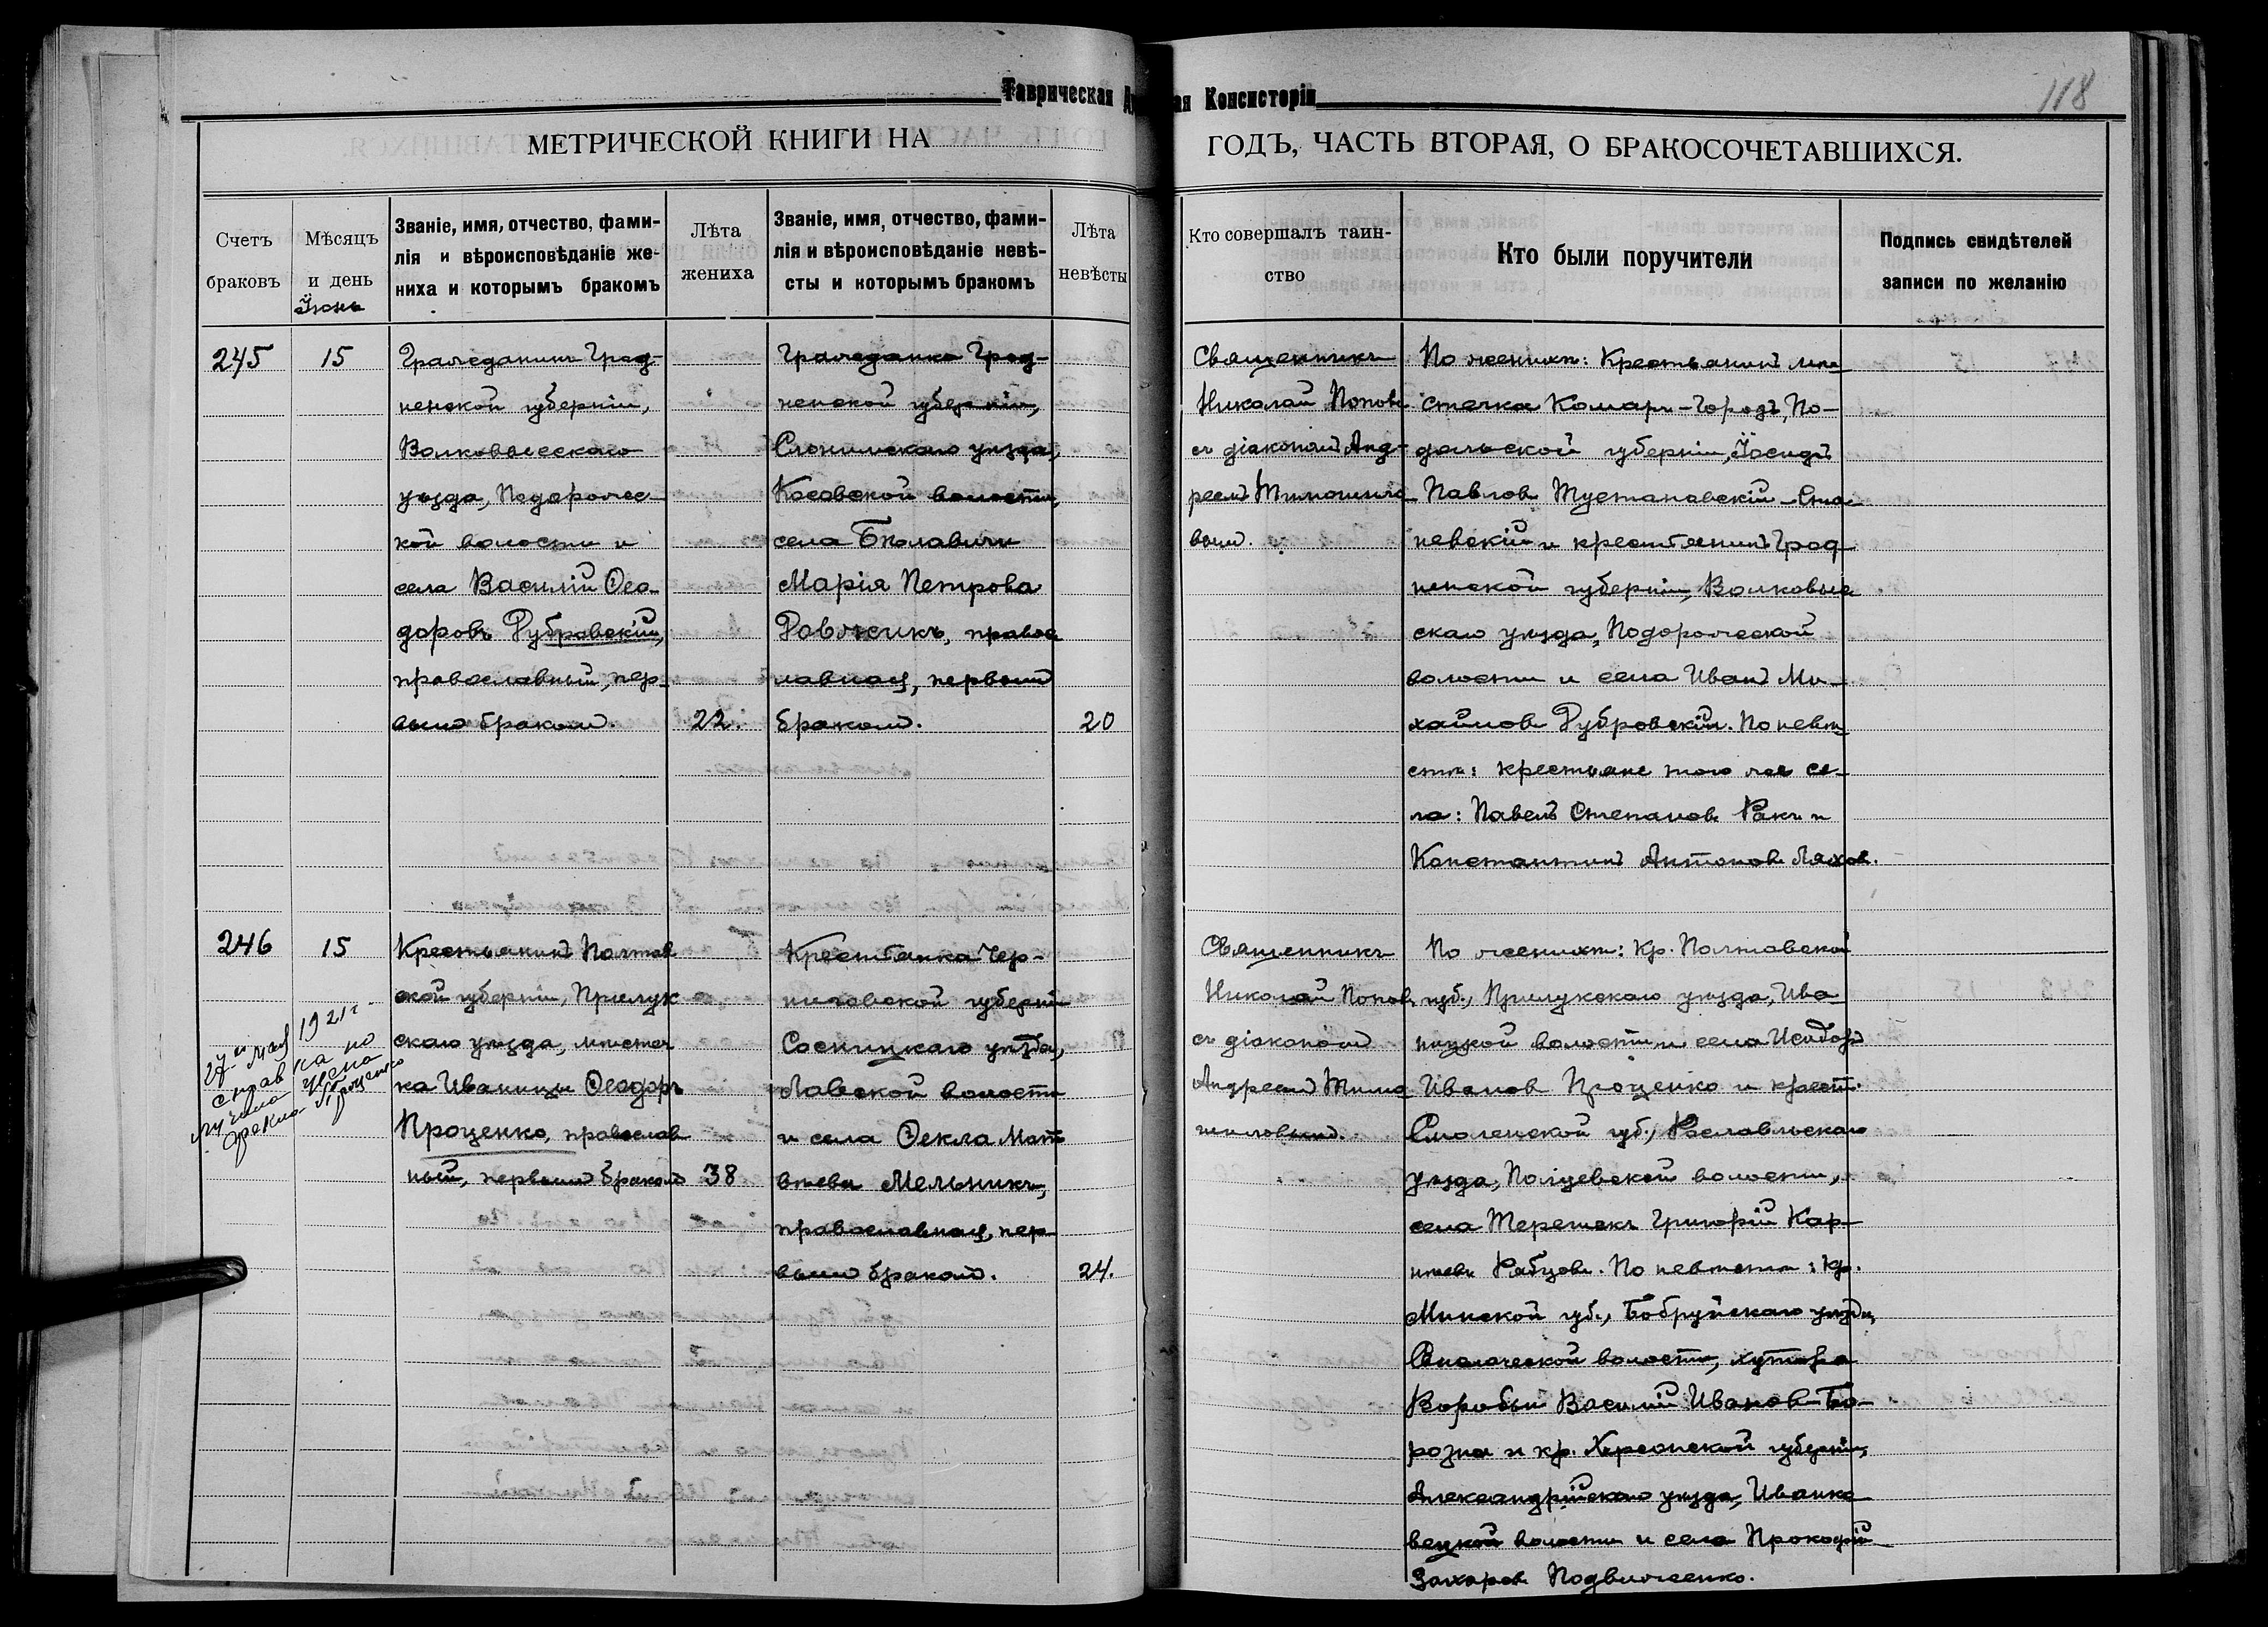 118
Таврическая
Консисторіи
МЕТРИЧЕСКОЙ КНИГИ НА
ГОДЪ, ЧАСТЬ ВТОРАЯ, О БРАКОСОЧЕТАВШИХСЯ.
Счетъ
браковъ
Мѣсяцъ
и день
Іюнь
Званіе, имя, отчество, фами-
лія и вѣроисповѣданіе же-
ниха и которымъ бракомъ
Лѣта
жениха
Званіе, имя, отчество, фами-
лія и вѣроисповѣданіе невѣ-
сты и которымъ бракомъ
Лѣта
невѣсты
Кто совершалъ таин-
ство
Кто были поручители
Подпись свидѣтелей
записи по желанію
245
15
Гражданинъ Грод-
ненской губерніи,
Волковысскаго
уѣзда, Подорос-
кой волости и
села Василій Ѳео-
доровъ Рубровскій,
православный, пер-
вымъ бракомъ.
22.
Гражданка Грод-
ненской губерніи,
Слонимскаго уѣзда,
Косовской волости,
села Бѣлавичи
Марія Петрова
Ровжикъ, правос
лавная, первымъ
бракомъ.
20
Священникъ
Николай Поповъ
съ діакономъ Анд-
реемъ Тимошило
вымъ.
По женихѣ: Крестьянинъ мѣ-
стечка Комаръ-Городъ, По-
дольской губерніи, Іосифъ
Павловъ Тустановскій
невскій и крестьянинъ Грод-
ненской губерніи, Волковыс
скаго уѣзда, Подоросской
волости и села Иванъ Ми-
хаиловъ Рубровскій. По невѣ
стѣ: крестьяне того же се-
ла: Павелъ Степановъ Ракъ и
Константинъ Антоновъ Ляхов.
246
15
27го мая 1921г
справка по
лучена
Ѳекла Проценко
Крестьянинъ Полтав
ской губерніи, Прилук
скаго уѣзда, мѣстеч
ка Иваницы Ѳеодоръ
Проценко, православ
ный, первымъ бракомъ
38
Крестьянка Чер-
ниговской губерніи
Сосницкаго уѣзда,
Лавской волости
и села Ѳекла Мат
вѣева Мельникъ,
православная, пер-
вымъ бракомъ.
24.
Священникъ
Николай Поповъ
съ діакономъ
Андреемъ Тимо
шиловымъ.
По женихѣ: Кр. Полтавской
губ., Прилукскаго уѣзда, Ива
ницкой волости и села Исидоръ
Ивановъ Проценко и крест.
Смоленской губ., Рославльскаго
уѣзда, волости,
села Терешекъ Григорій Кор-
нѣевъ Рябцовъ. По невѣстѣ: Кр.
Минской губ., Бобруйскаго уѣзда,
волости, хутора
Воробьи Василій Ивановъ Бо-
розна и кр. Херсонской губерніи,
Александрійскаго уѣзда, Иванко
вецкой волости и села Прокофій
Захаровъ